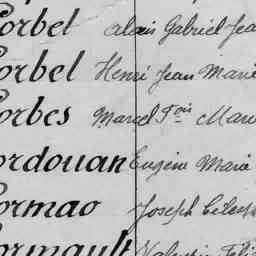 Corbel Alexis Gabriel Jea
Corbel Henri Jean Marie
Corbes Marcel Fois Mari
Cordouan Eugène Marie
Cormao Joseph Célest
Cormault Valentin Féli